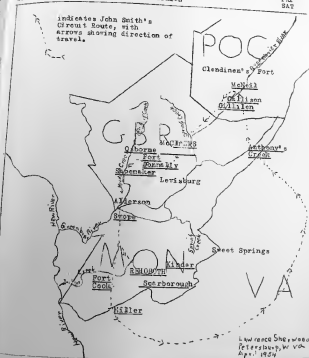 SAT
indicates John Smith's
Circuit Route, with
arrows showing direction of
travel.
POC
Clendinen's Fort
McNeil
Callison
GBR
Osborne
Fort
Donnally
Shoemaker
Lewisburg
Anthony's
Creek
Alderson
Swope
New River
MON
Kinder
Sweet Springs
REHOBOTH
Fort
Cook
Scarborough
VA
Miller
Lawrence Sherwood
Petersburg, W Va
April 1954